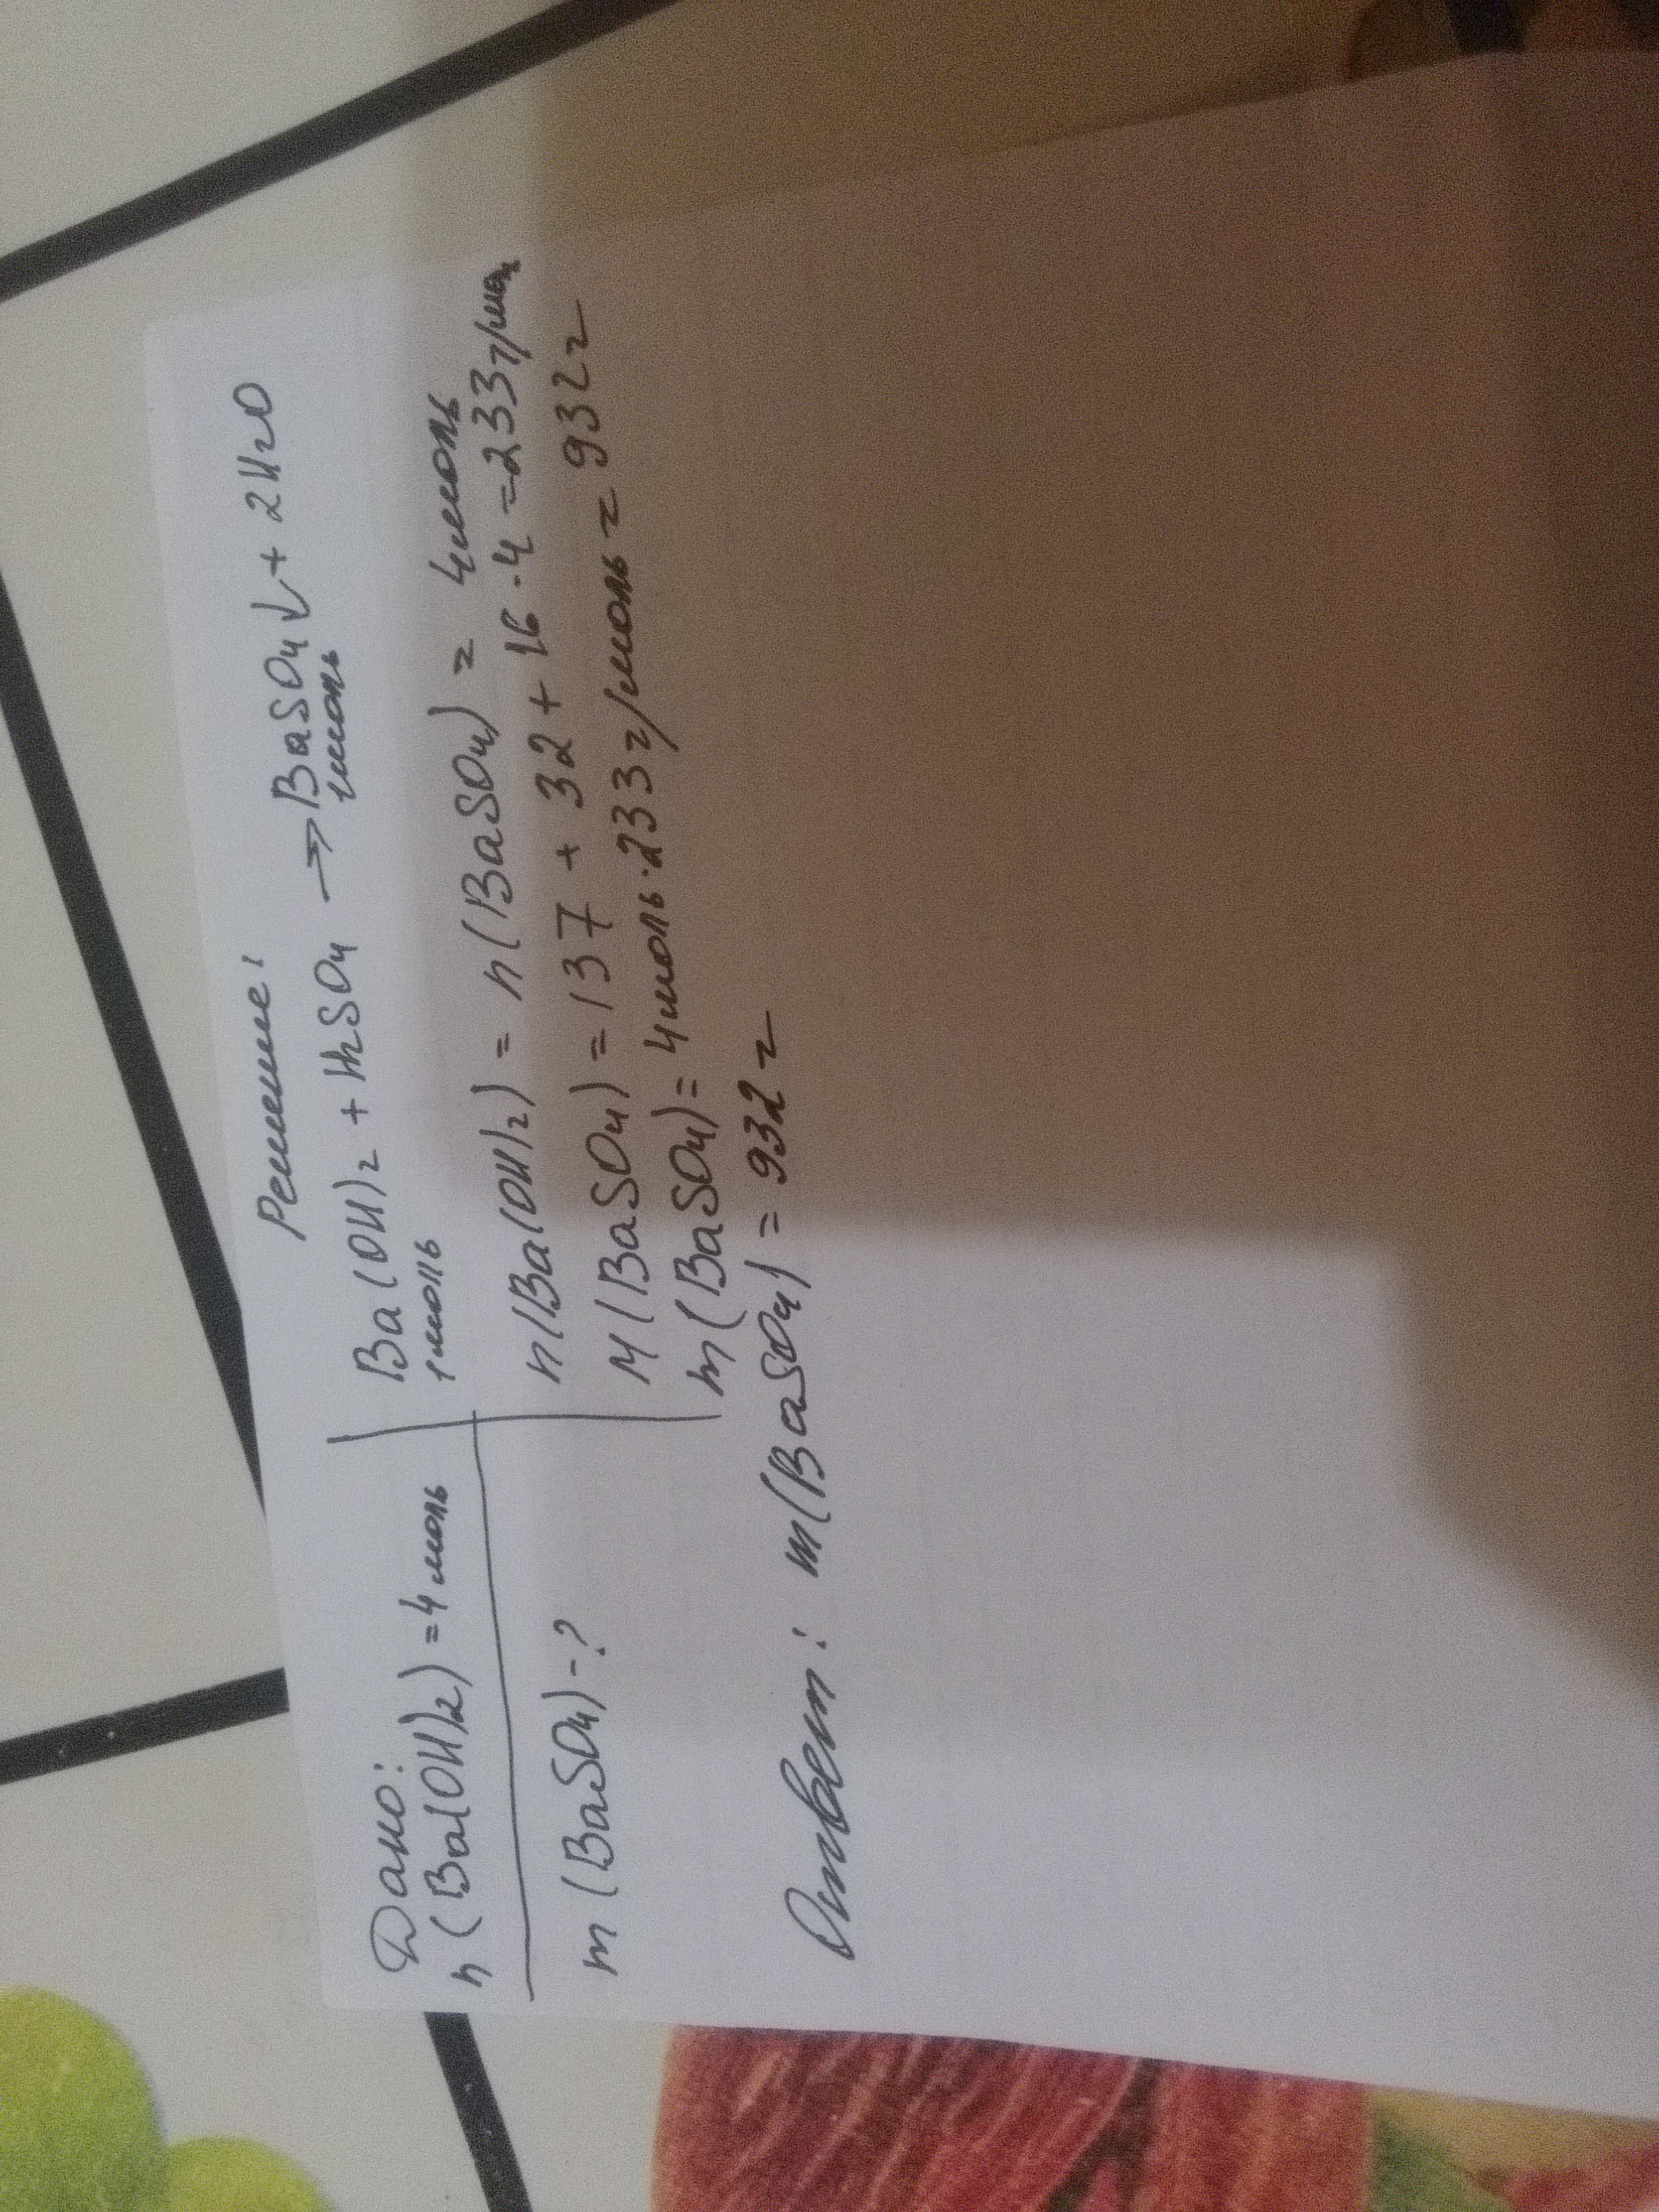 Решение:
Дано:
n(Ba(OH)₂) = 4 моль
Ba(OH)₂ + H₂SO₄ → BaSO₄↓ + 2H₂O
1 моль 1 моль
m(BaSO₄) - ?
n(Ba(OH)₂) = n(BaSO₄) = 4 моль
M(BaSO₄) = 137 + 32 + 16 · 4 = 233 г/моль
m(BaSO₄) = 4 моль · 233 г/моль = 932 г
Ответ: m(BaSO₄) = 932 г